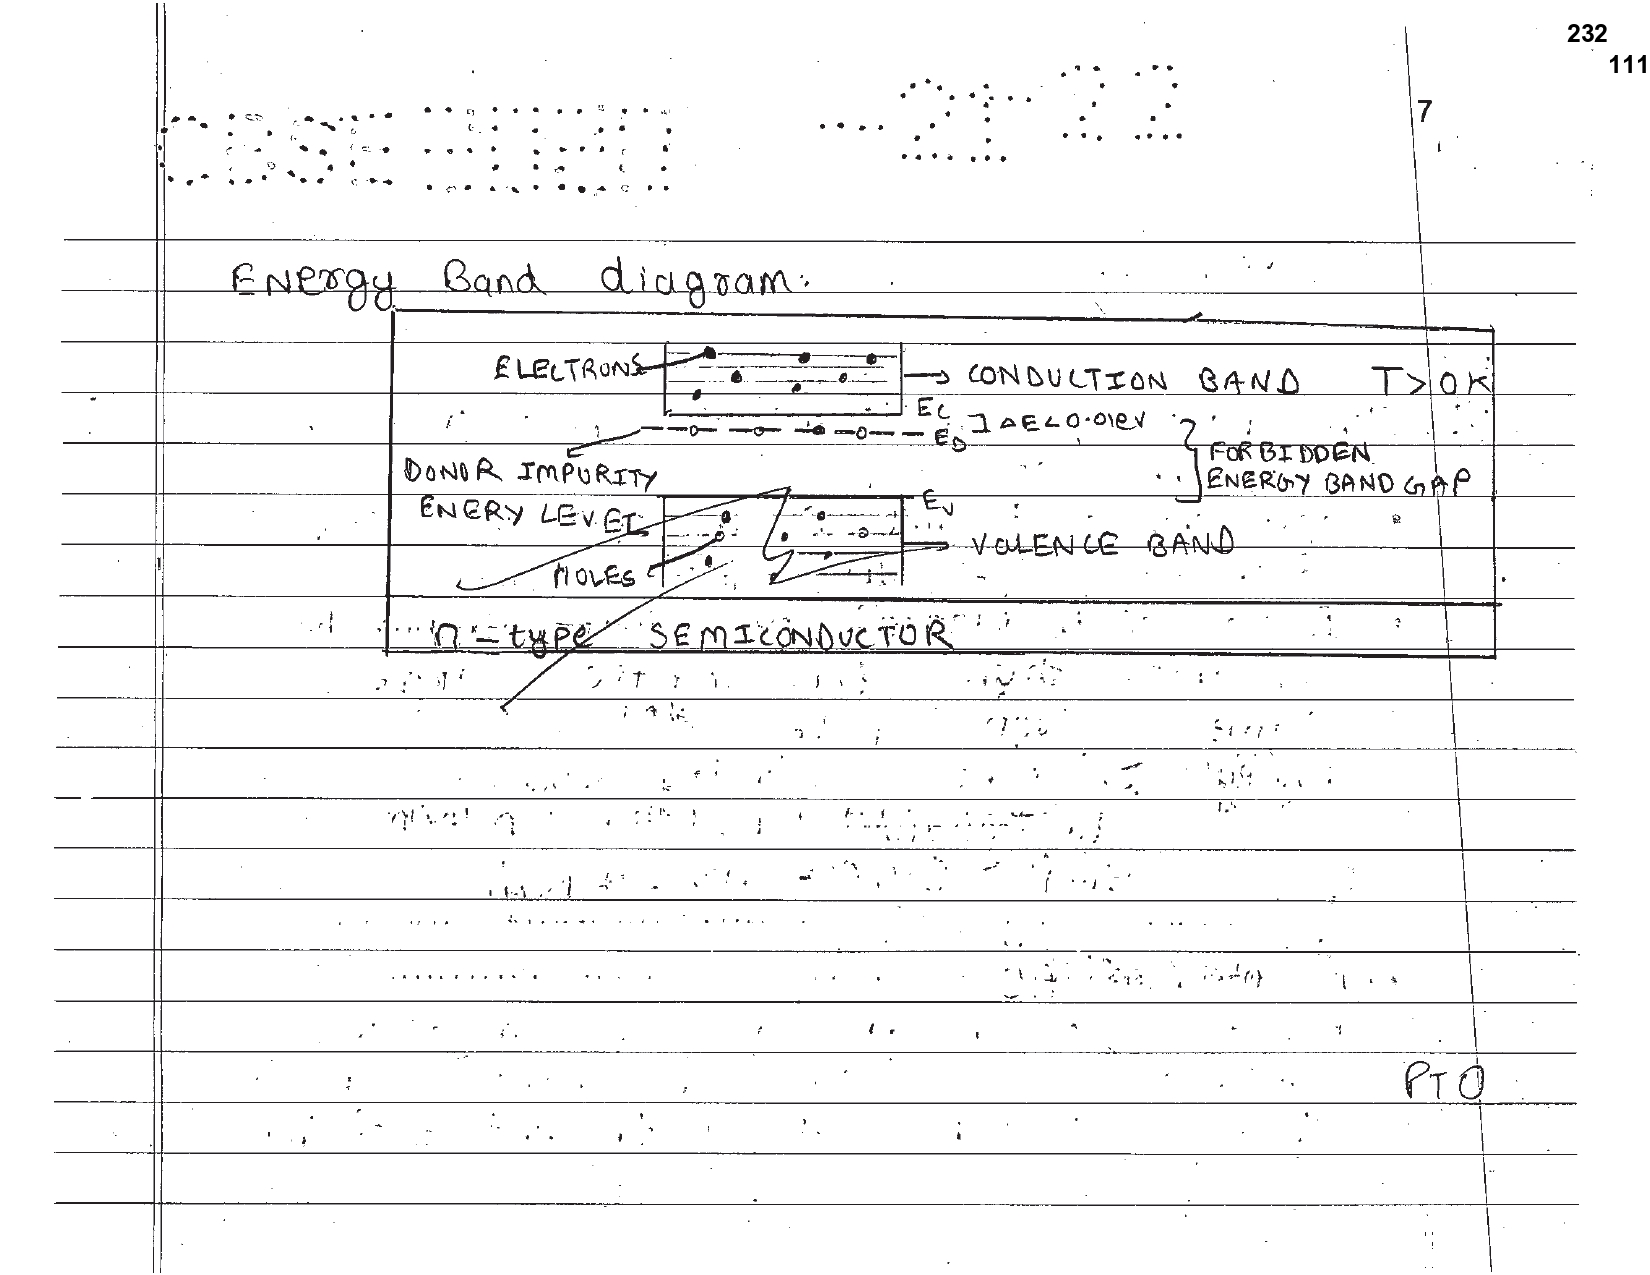 232
111
7
CBSE
-21-22
ENergy Band diagram:
ELECTRONS
CONDUCTION BAND T>0K
EC
ED
]ΔE<0.01eV
FORBIDDEN
ENERGY BAND GAP
DONOR IMPURITY
ENERY LEVEL
EV
VOLENCE BAND
HOLES
n-type SEMICONDUCTOR
PTO